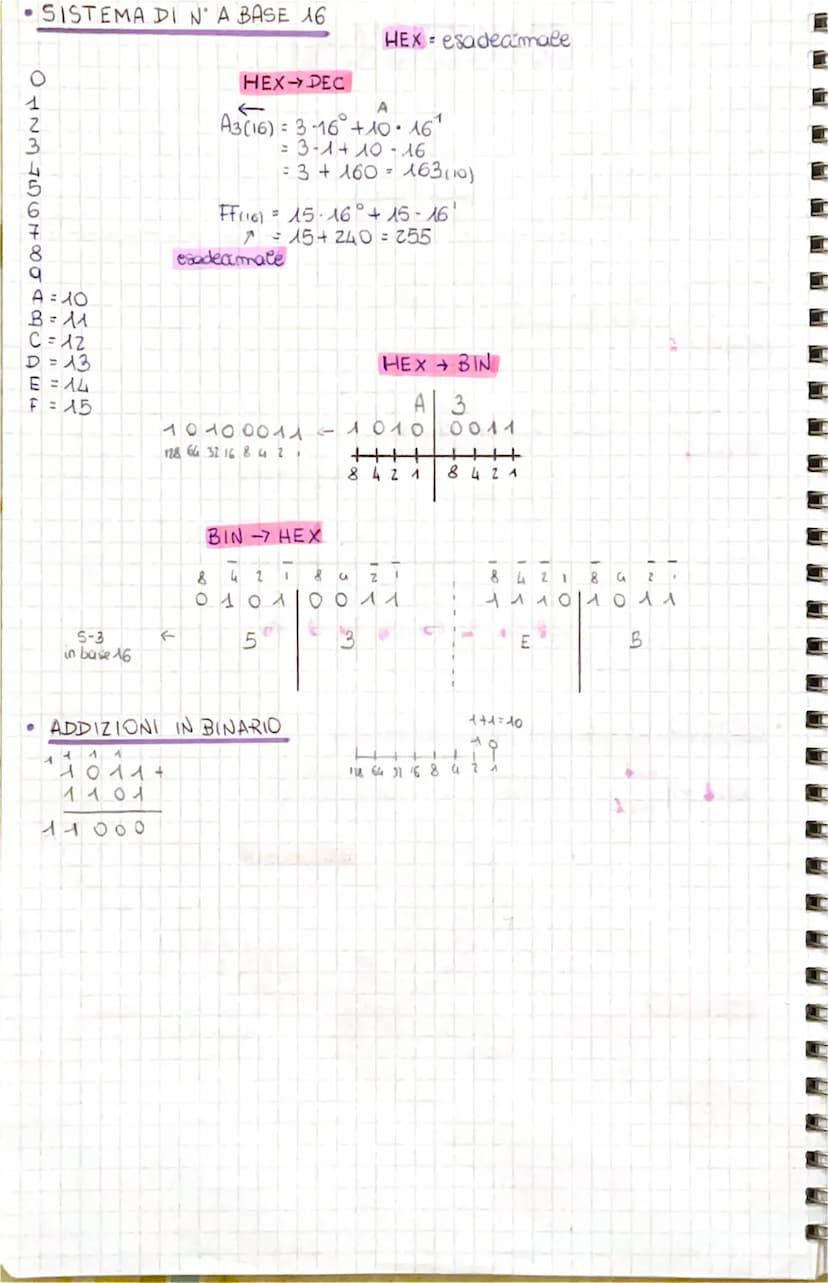 • SISTEMA DI N° A BASE 16
HEX = esadecimale
0
1
2
3
4
5
6
7
8
9
A = 10
B = 11
C = 12
D = 13
E = 14
F = 15
HEX → DEC
←
A
A3(16) = 3·16⁰ + 10 · 16¹
= 3·1 + 10 · 16
= 3 + 160 = 163(10)
FF(16) = 15·16⁰ + 15·16¹
↗ = 15 + 240 = 255
esadecimale
HEX → BIN
A | 3
1 0 1 0 0 0 1 1 ← 1 0 1 0 | 0 0 1 1
128 64 32 16 8 4 2 1
8 4 2 1 8 4 2 1
BIN → HEX
8 4 2 1 8 4 2 1 8 4 2 1 8 4 2 1
0 1 0 1 | 0 0 1 1 1 1 1 0 | 1 0 1 1
5-3 ← 5 3 E B
in base 16
• ADDIZIONI IN BINARIO
1+1=10
1 0
128 64 32 16 8 4 2 1
1 1 1 1
1 0 1 1 +
1 1 0 1
1 1 0 0 0